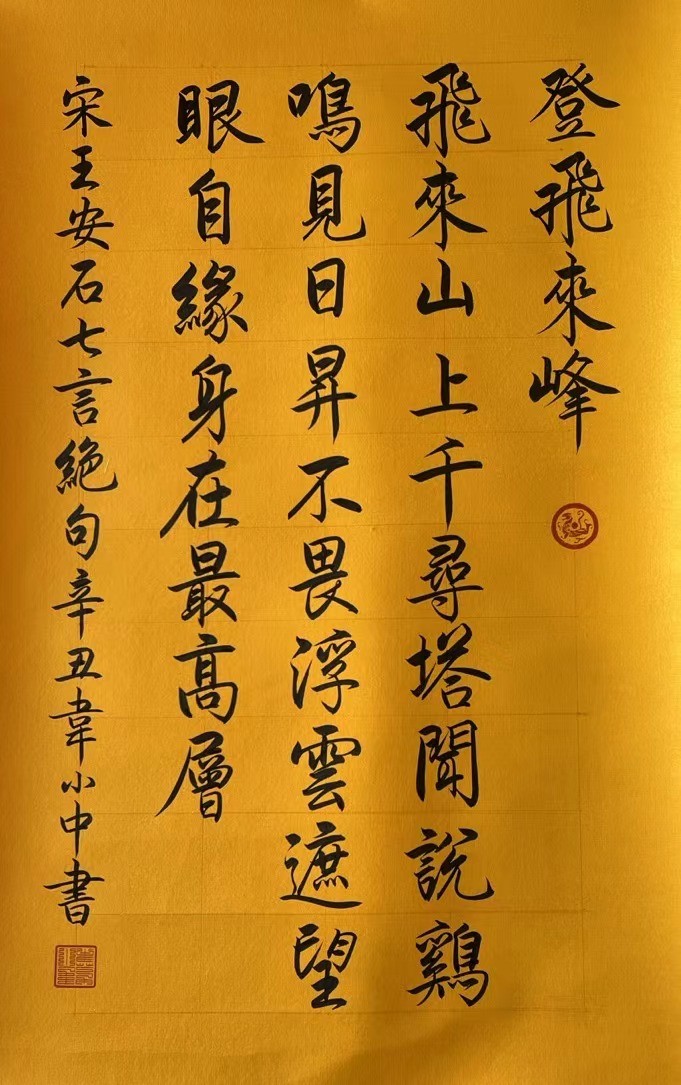 登飛來峰
飛來山上千尋塔聞說鷄
鳴見日昇不畏浮雲遮望
眼自緣身在最高層
宋王安石七言絕句辛丑韋小中書